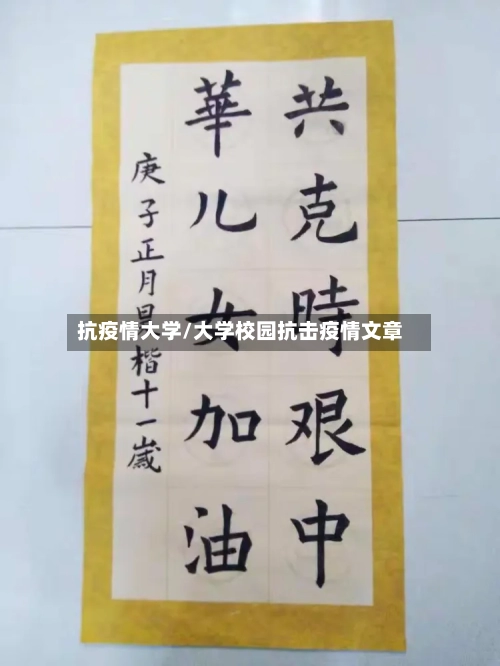 共克時艰中
華儿女加油
庚子正月 楷十一歲
抗疫情大学/大学校园抗击疫情文章